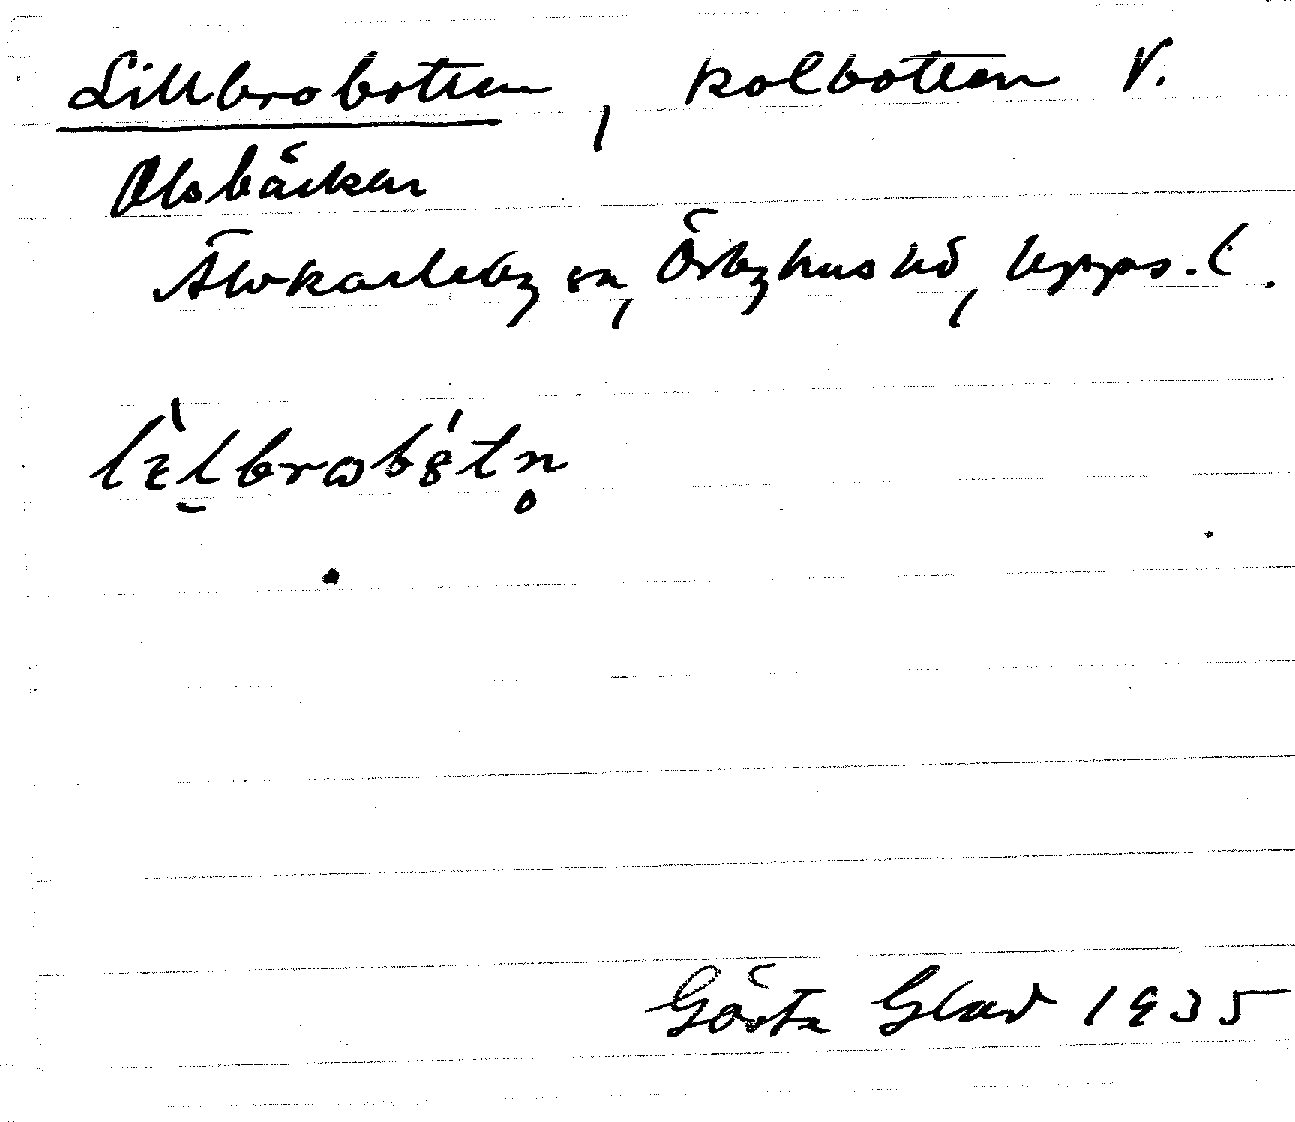 Lillbrobotten, kolbotten V.
Olsbäcken
Älvkarleby sn, Örbyhus hd, Upps. l.
Gösta Glad 1935